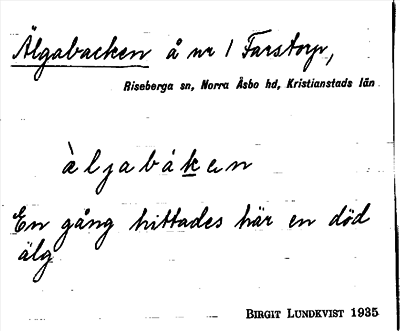 Älgabacken å nr 1 Farstorp,
Riseberga sn, Norra Åsbo hd, Kristianstads län.
àljabáken
En gång hittades här en död
älg
BIRGIT LUNDKVIST 1935